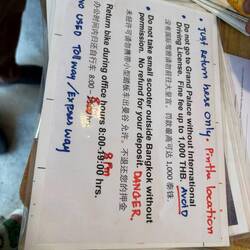 • Just Return here only. Printh location
• Do not go to Grand Palace without International
Driving License. Fine fee up to 1,000 THB AVOID
没有国际驾照请勿前往大皇宫。罚款最高可达 1,000 泰铢。
• Do not take small scooter outside Bangkok without
Permission. No refund for your deposit. DANGER
未经许可请勿携带小型踏板车出曼谷 允许。不退还您的押金
Return bike during office hours 8:00-19:00 hrs. 8 Pm
办公时间内归还自行车 8:00-
NO USED Tollway/Express way